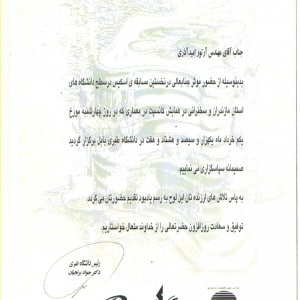 جناب آقای مهندس آرتور امیدآذری
بدینوسیله از حضور موثر جنابعالی در نخستین مسابقه ی اسکیس در سطح دانشگاه های
استان مازندران و سخنرانی در همایش کانسپت در معماری که در روز چهارشنبه مورخ
یکم خرداد ماه یکهزار و سیصد و هشتاد و هفت در دانشگاه طبری بابل برگزار گردید
صمیمانه سپاسگزاری می نماییم.
به پاس تلاش های ارزنده تان این لوح به رسم یادبود تقدیم حضورتان می گردد.
توفیق و سعادت روزافزون حضرتعالی را از خداوند متعال خواستاریم.
رئیس دانشگاه طبری
دکتر جواد براهیان